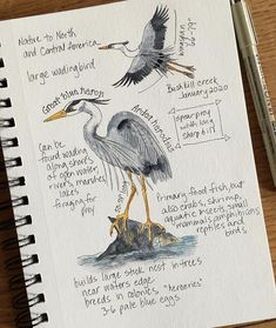 Native to North
and Central America
large wading bird
66-79"
wingspan
Bushkill creek
January 2020
Great blue heron
Ardea herodias
spear prey
with long
sharp bill
can be
found wading
along shores
of open water,
rivers, marshes,
lakes
foraging for
prey
Primary food fish, but
also crabs, shrimp,
aquatic insects, small
mammals, amphibians
reptiles and
birds
builds large stick nest in trees
near waters edge
breeds in colonies "heronries"
3-6 pale blue eggs